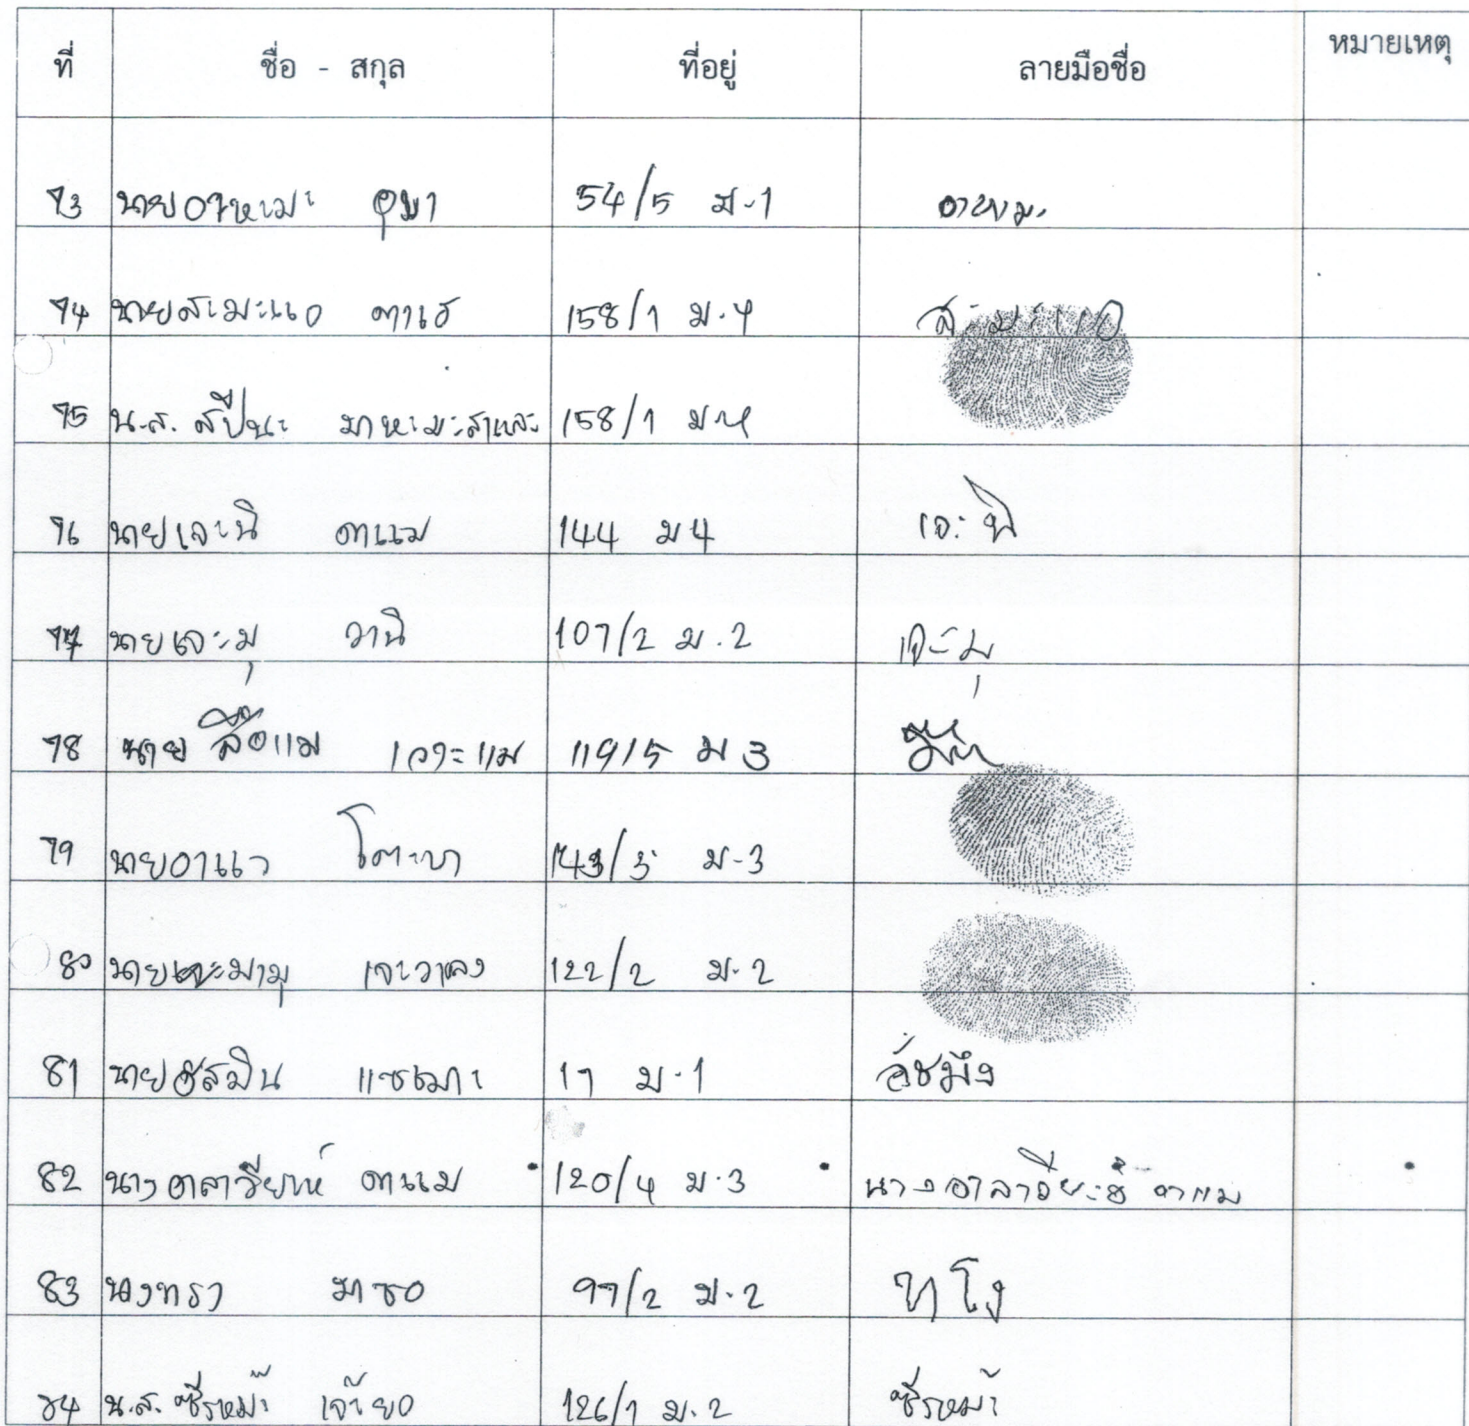 ที่ ชื่อ - สกุล ที่อยู่ ลายมือชื่อ หมายเหตุ
73 นายอาหะมะ อุมา 54/5 ม.1
74 นายสะมะแอ ตาเย๊ะ 158/1 ม.4 สะมะแอ
75 น.ส. สปีนะ มาหะมะสาและ 158/1 ม.4
76 นายเจะนิ ตาแม 144 ม 4 เจะนิ
77 นายเจะมุ วานิ 107/2 ม.2 เจะมุ
78 นาย สือแม เจาะแม 119/5 ม 3
79 นายอาแว โตะบา ม.3
80 นายเจะมามุ 122/2 ม.2
81 นายอัสมิน 17 ม.1 อัชมิง
82 นาง ตาแม 120/4 ม.3 นาง ตาแม
83 นาง มาซอ 97/2 ม.2
84 น.ส. ซีรหม๊ะ เจ๊ะยอ 126/1 ม.2 ซีรหม๊ะ